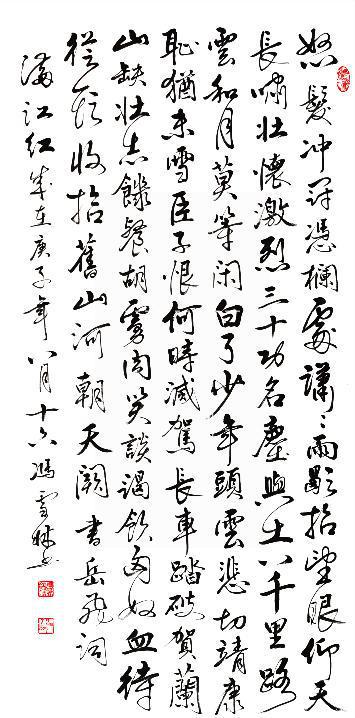 怒髮冲冠憑欄處瀟々雨歇抬望眼仰天
長嘯壯懷激烈三十功名塵與土八千里路
雲和月莫等闲白了少年頭空悲切靖康
恥猶未雪臣子恨何時滅駕長車踏破賀蘭
山缺壯志饑餐胡虜肉笑談渴飲匈奴血待
從頭收拾舊山河朝天闕書岳飛詞
滿江红歲在庚子年八月十六馮雪林書